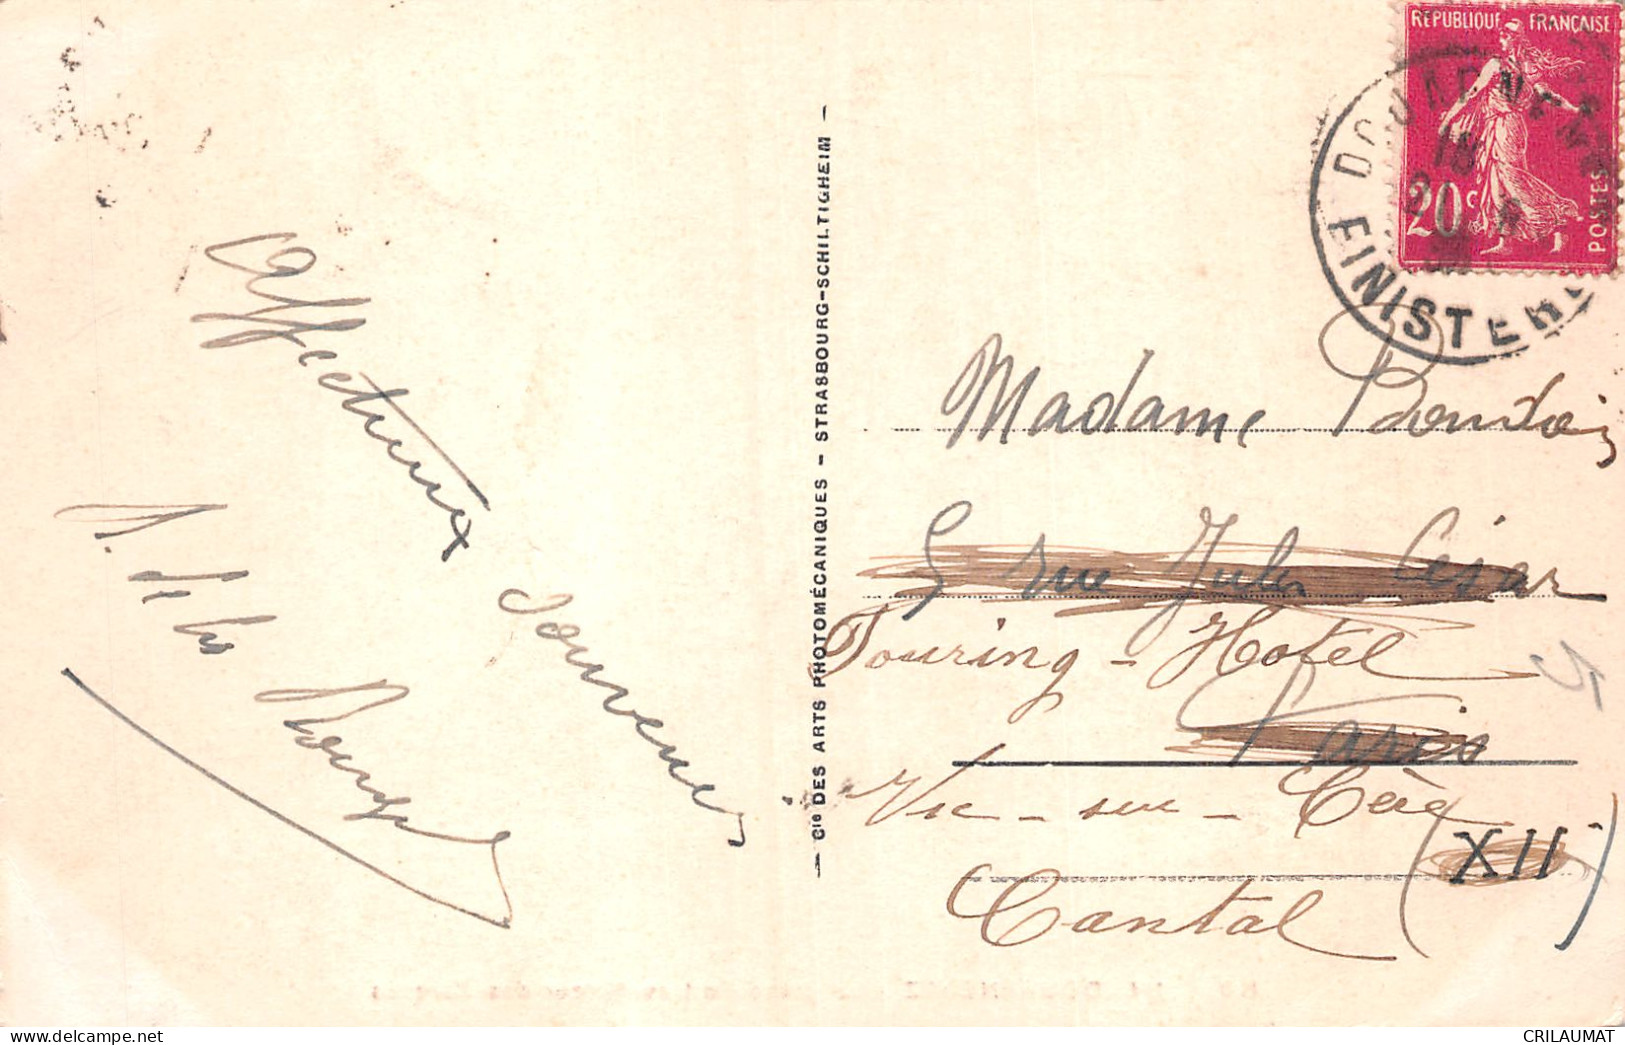 Affectueux
souvenirs
Cie DES ARTS PHOTOMÉCANIQUES - STRASBOURG-SCHILTIGHEIM
RÉPUBLIQUE FRANÇAISE
20c
POSTES
DOUARNENEZ
18
FINISTERE
Madame
5 rue Jules César
Touring-Hotel
Paris
Vic-sur-Cère
(XII)
Cantal
CRILAUMAT